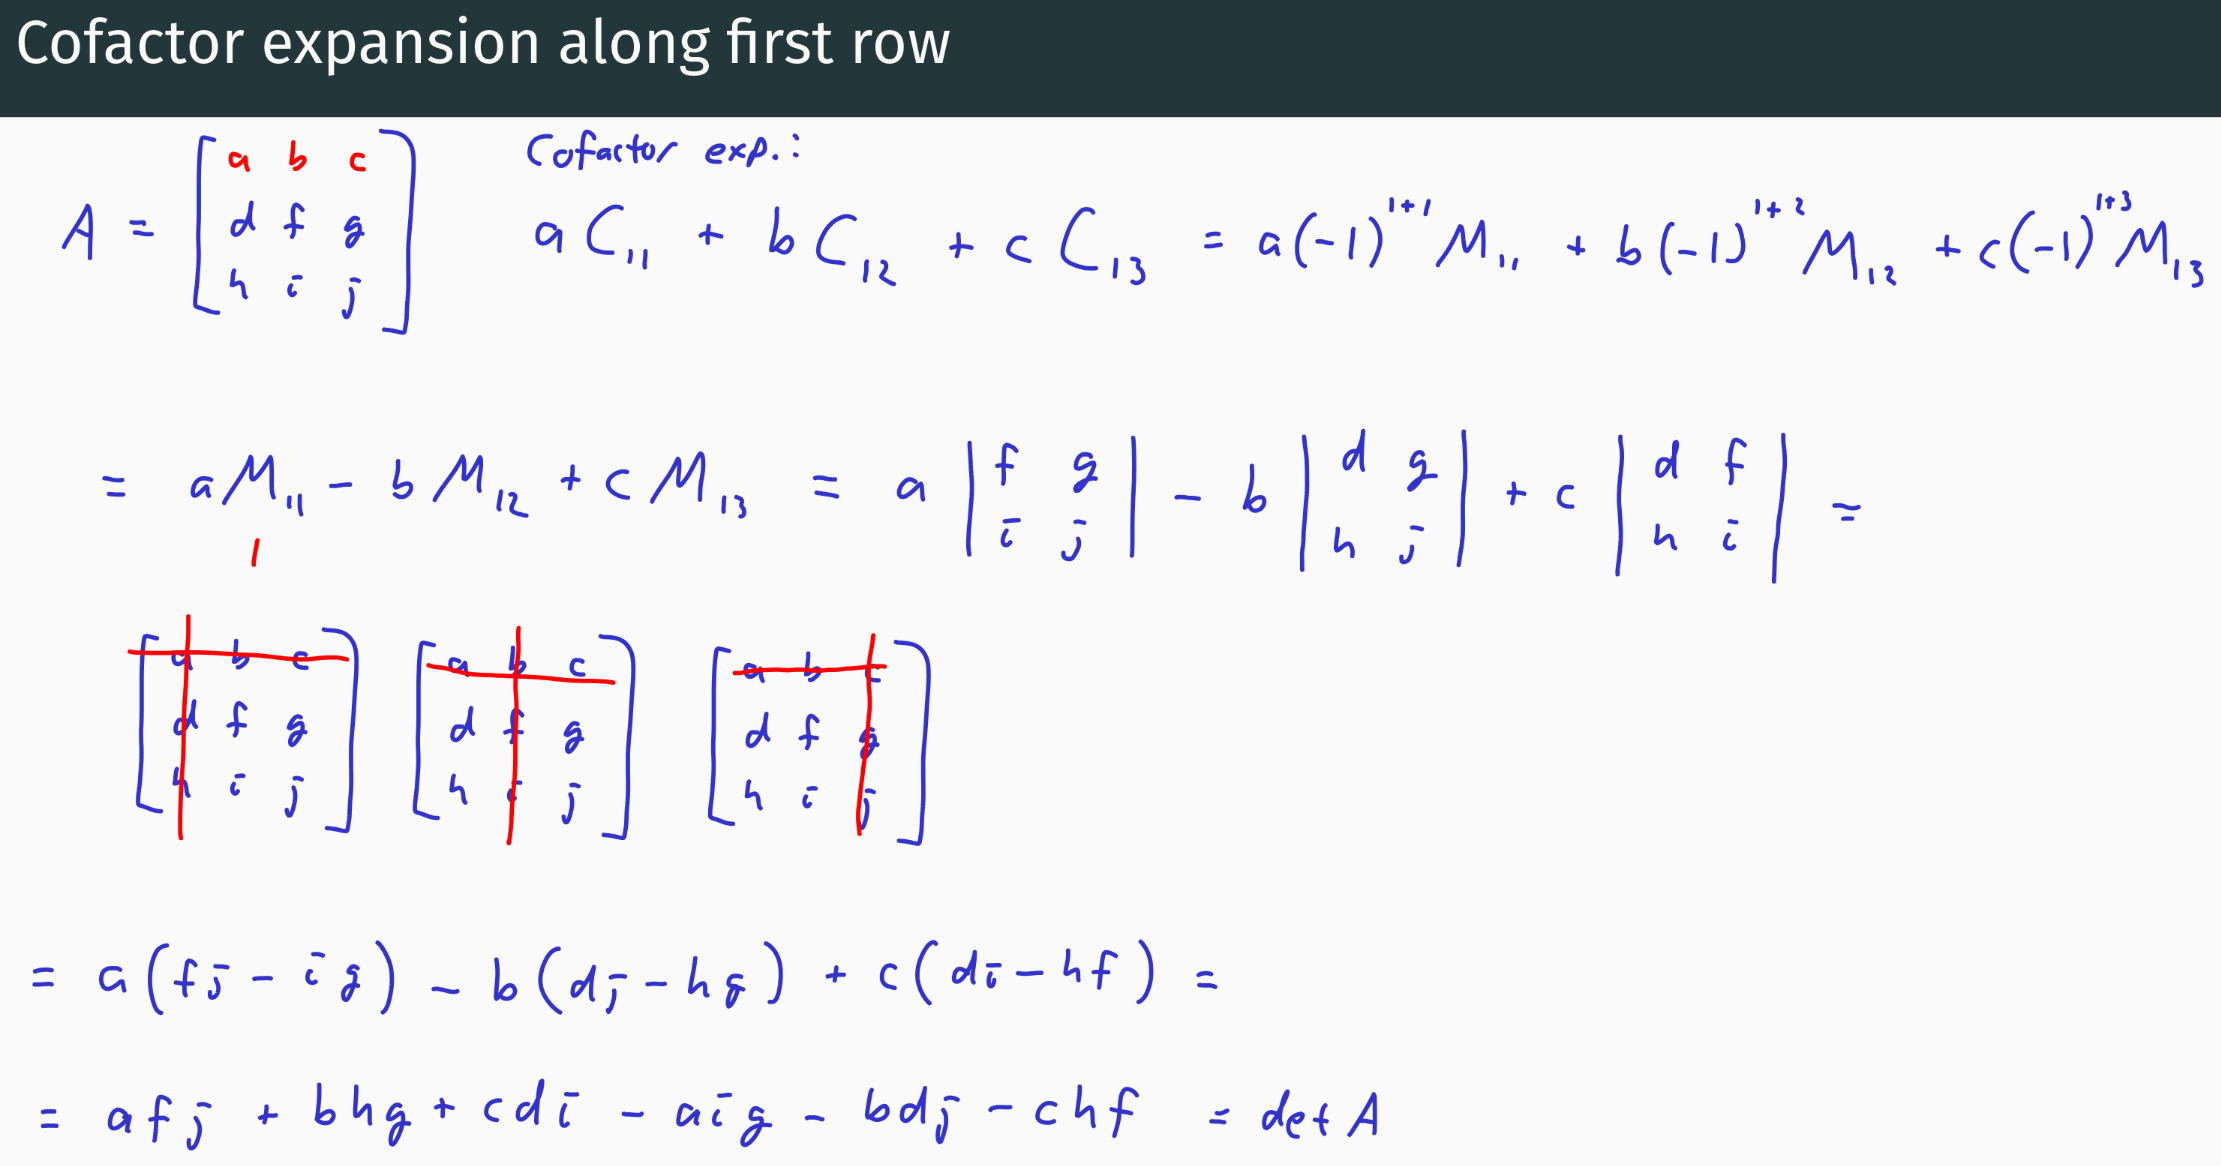 Cofactor expansion along first row
A = [ a b c
d f g
h i j ]
Cofactor exp.:
aC₁₁ + bC₁₂ + cC₁₃ = a(-1)¹⁺¹M₁₁ + b(-1)¹⁺²M₁₂ + c(-1)¹⁺³M₁₃
= aM₁₁ - bM₁₂ + cM₁₃ = a | f g ; i j | - b | d g ; h j | + c | d f ; h i | =
[ a b c
d f g
h i j ]
[ a b c
d f g
h i j ]
[ a b c
d f g
h i j ]
= a(fj - ig) - b(dj - hg) + c(di - hf) =
= afj + bhg + cdi - aig - bdj - chf = det A